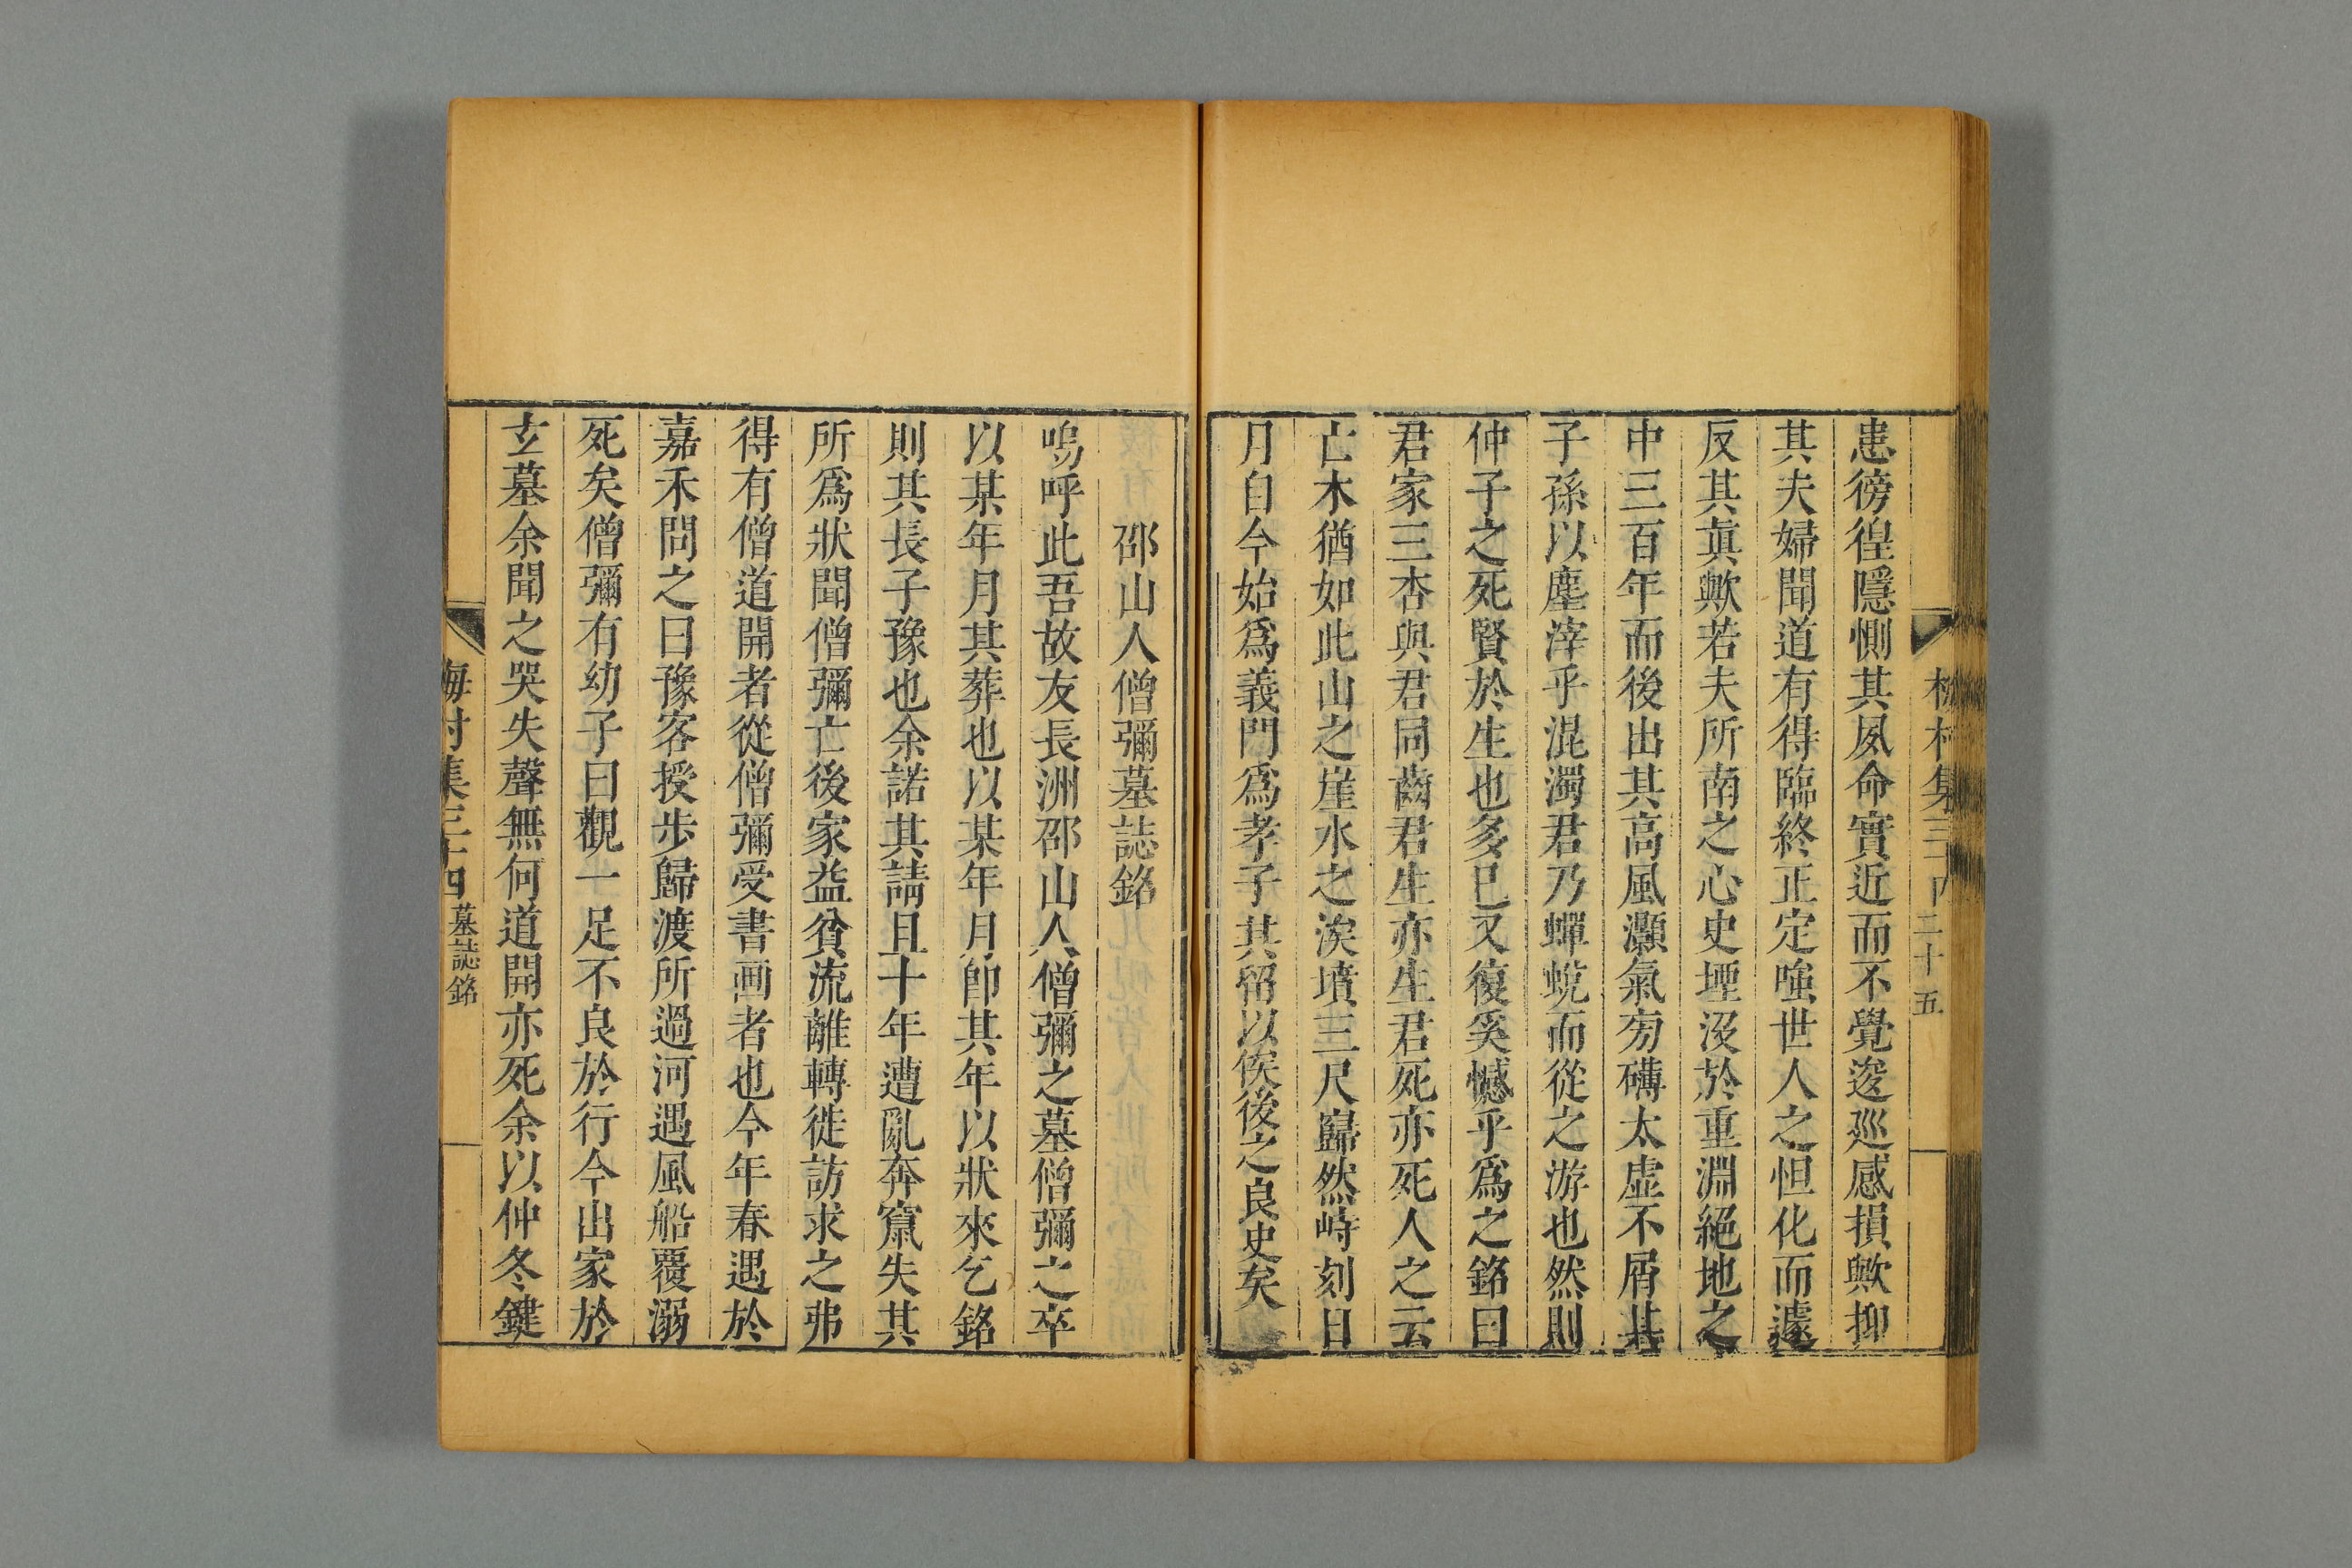 梅村集三十四 二十五
患徬徨隱惻其夙命實近而不覺逡巡感損歟抑
其夫婦聞道有得臨終正定嗤世人之怛化而遽
反其眞歟若夫所南之心史堙沒於重淵絕地之
中三百年而後出其高風灝氣旁礴太虛不屑其
子孫以塵滓乎混濁君乃蟬蛻而從之游也然則
仲子之死賢於生也多已又復奚憾乎爲之銘曰
君家三杏與君同齒君生亦生君死亦死人之云
亡木猶如此山之崖水之涘墳三尺巋然峙刻日
月自今始爲義門爲孝子其留以俟後之良史矣
邵山人僧彌墓誌銘
嗚呼此吾故友長洲邵山人僧彌之墓僧彌之卒
以某年月其葬也以某年月卽其年以狀來乞銘
則其長子豫也余諾其請且十年遭亂奔竄失其
所爲狀聞僧彌亡後家益貧流離轉徙訪求之弗
得有僧道開者從僧彌受書画者也今年春遇於
嘉禾問之曰豫客授步歸渡所過河遇風船覆溺
死矣僧彌有幼子曰觀一足不良於行今出家於
玄墓余聞之哭失聲無何道開亦死余以仲冬鍵
梅村集三十四 墓誌銘